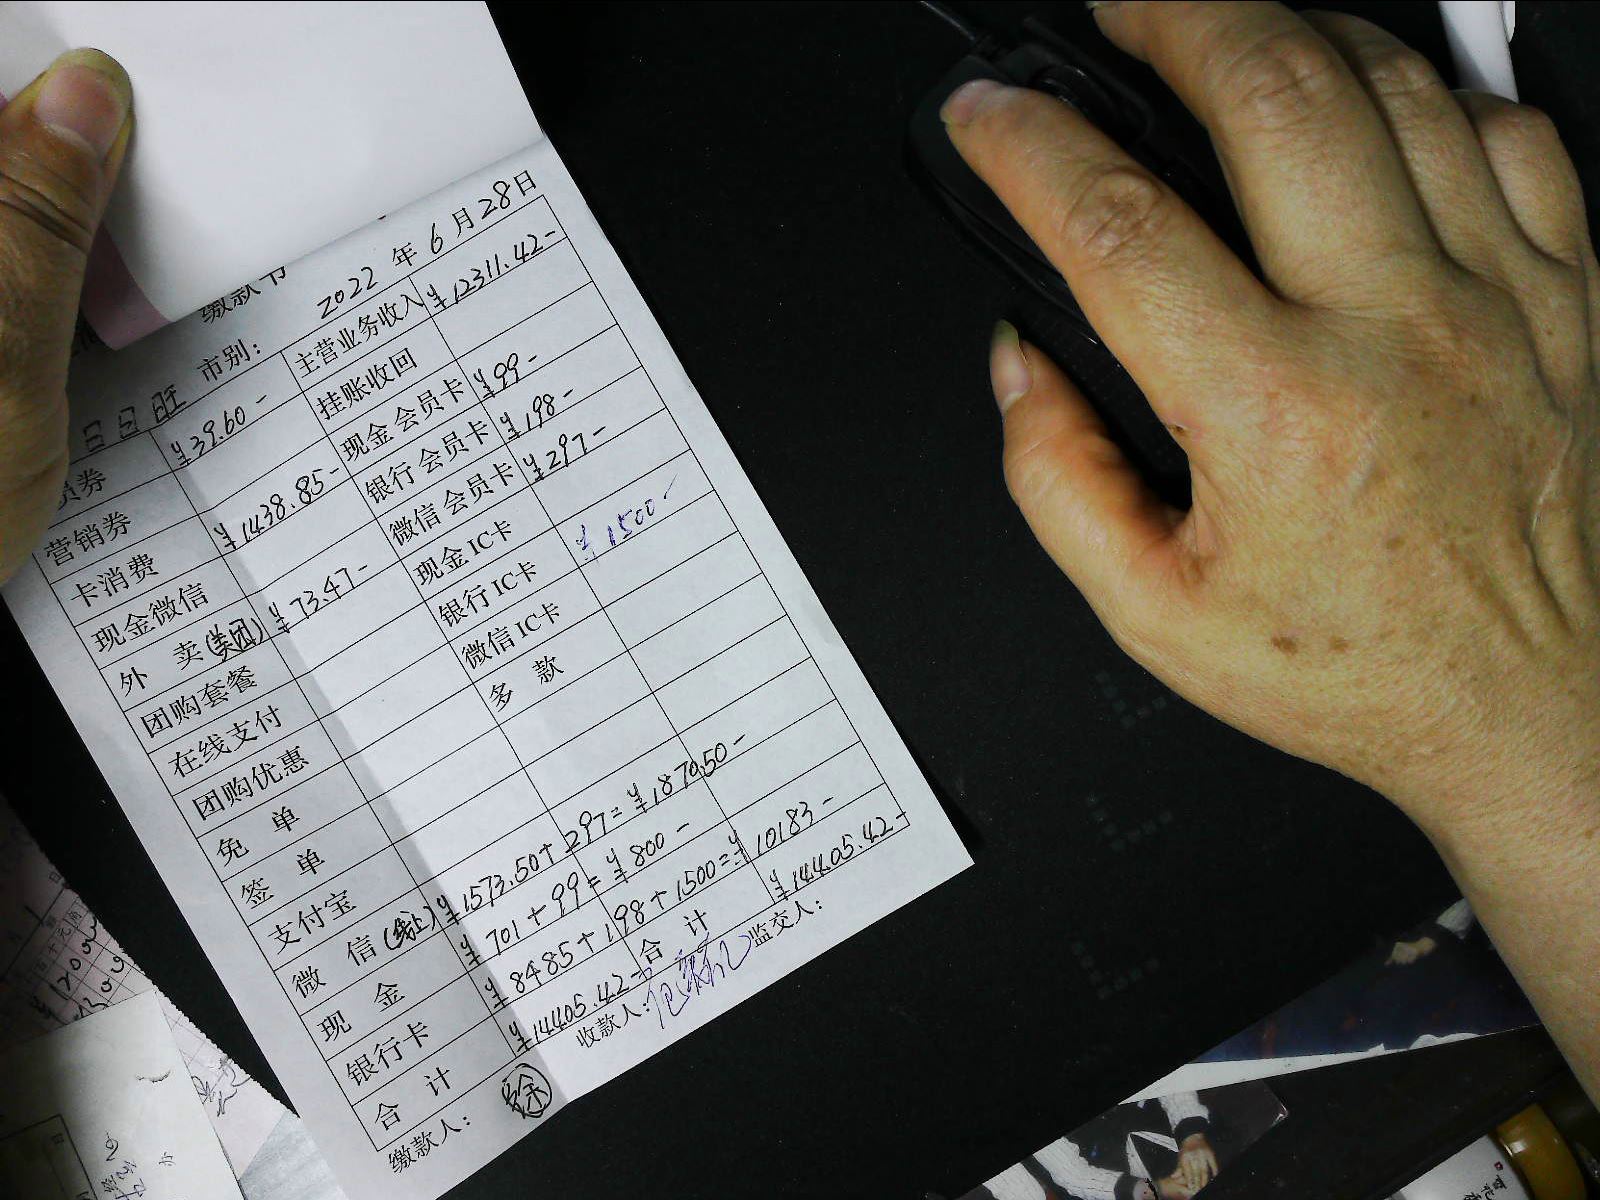 缴款书
2022年6月28日
日日旺 市别:
券 ¥39.60- 主营业务收入 ¥12311.42-
营销券 挂账收回
卡消费 ¥1438.85- 现金会员卡 ¥99-
现金微信 银行会员卡 ¥198-
外 卖(美团) ¥73.47- 微信会员卡 ¥297-
团购套餐 现金IC卡
在线支付 银行IC卡 ¥1500-
团购优惠 微信IC卡
免 单 多 款
签 单
支付宝
微 信(线上) ¥1573.50+297=¥1870.50-
现 金 ¥701+99=¥800-
银行卡 ¥8485+198+1500=¥10183-
合 计 ¥14405.42- 合 计 ¥14405.42-
缴款人: 徐 收款人: 监交人: